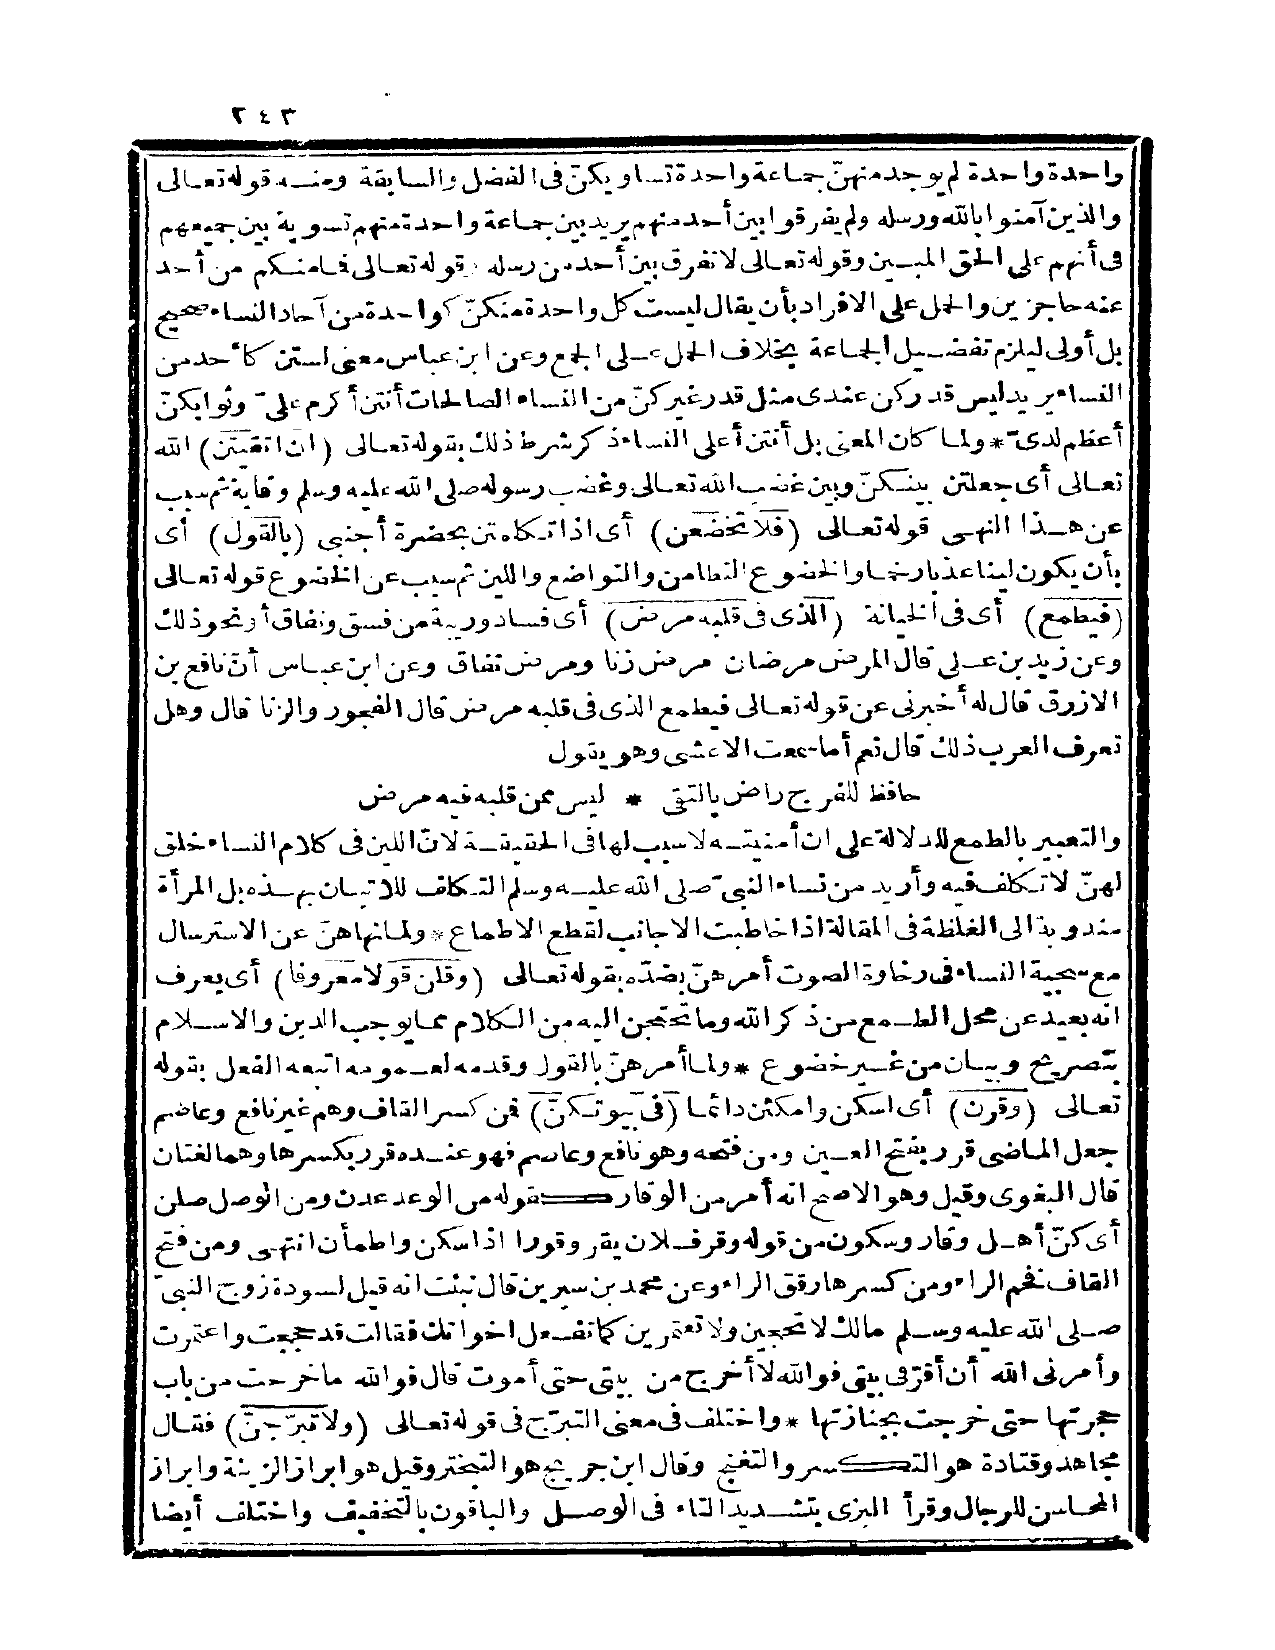 ٢٤٣
واحدة واحدة لم يوجد منهنّ جماعة واحدة تساويكنّ فى الفضل والسابقة ومنه قوله تعالى
والذين آمنوا بالله ورسله ولم يفرقوا بين أحد منهم يريد بين جماعة واحدة منهم تسوية بين جميعهم
فى أنهم على الحق المبين وقوله تعالى لا نفرق بين أحد من رسله وقوله تعالى فما منكم من أحد
عنه حاجزين والحمل على الافراد بأن يقال ليست كل واحدة منكنّ كواحدة من آحاد النساء صحيح
بل أولى ليلزم تفضيل الجماعة بخلاف الحمل على الجمع وعن ابن عباس معنى لستن كأحد من
النساء يريد ليس قدركن عندى مثل قدر غيركنّ من النساء الصالحات أنتن أكرم علىّ وثوابكنّ
أعظم لدىّ * ولما كان المعنى بل أنتن أعلى النساء ذكر شرط ذلك بقوله تعالى (ان اتقيتن) الله
تعالى أى جعلتن بينكنّ وبين غضب الله تعالى وغضب رسوله صلى الله عليه وسلم وقاية ثم سبب
عن هذا النهى قوله تعالى (فلا تخضعن) أى اذا تكلمتن بحضرة أجنبى (بالقول) أى
بأن يكون لينا عذبا رخما والخضوع التطامن والتواضع واللين ثم سبب عن الخضوع قوله تعالى
(فيطمع) أى فى الخيانة (الذى فى قلبه مرض) أى فساد وريبة من فسق ونفاق أو نحو ذلك
وعن زيد بن على قال المرض مرضان مرض زنا ومرض نفاق وعن ابن عباس أنّ نافع بن
الازرق قال له أخبرنى عن قوله تعالى فيطمع الذى فى قلبه مرض قال الفجور والزنا قال وهل
تعرف العرب ذلك قال نعم أما سمعت الاعشى وهو يقول
حافظ للفرج راض بالتقى * ليس ممن قلبه فيه مرض
والتعبير بالطمع للدلالة على ان أمنيته لا سبب لها فى الحقيقة لانّ اللين فى كلام النساء خلق
لهنّ لا تكلف فيه وأريد من نساء النبىّ صلى الله عليه وسلم التكلف للاتيان بهذه بل المرأة
مندوبة الى الغلظة فى المقالة اذا خاطبت الاجانب لقطع الاطماع * ولما نهاهنّ عن الاسترسال
مع سجية النساء فى رخاوة الصوت أمرهنّ بضدّه بقوله تعالى (وقلن قولا معروفا) أى يعرف
انه بعيد عن محل الطمع من ذكر الله وما تحتجن اليه من الكلام مما يوجب الدين والاسلام
بتصريح وبيان من غير خضوع * ولما أمرهنّ بالقول وقدمه لعمومه اتبعه الفعل بقوله
تعالى (وقرن) أى اسكن وامكثن دائما (فى بيوتكنّ) فمن كسر القاف وهم غير نافع وعاصم
جعل الماضى قرر بفتح العين ومن فتحه وهو نافع وعاصم فهو عنده قرر بكسرها وهما لغتان
قال البغوى وقيل وهو الاصح انه أمر من الوقار كقوله من الوعد عدن ومن الوصل صلن
أى كنّ أهل وقار وسكون من قوله وقر فلان يقر وقورا اذا سكن واطمأن انتهى ومن فتح
القاف فخم الراء ومن كسرها رقق الراء وعن محمد بن سيرين قال نبئت انه قيل لسودة زوج النبىّ
صلى الله عليه وسلم مالك لا تحجين ولا تعتمرين كما تفعل اخواتك فقالت قد حججت واعتمرت
وأمرنى الله أن أقرّ فى بيتى فوالله لا أخرج من بيتى حتى أموت قال فوالله ما خرجت من باب
حجرتها حتى خرجت بجنازتها * واختلف فى معنى التبرّج فى قوله تعالى (ولا تبرّجنّ) فقال
مجاهد وقتادة هو التكسر والتغنج وقال ابن جريج هو التبختر وقيل هو ابراز الزينة وابراز
المحاسن للرجال وقرأ البزى بتشديد التاء فى الوصل والباقون بالتخفيف واختلف أيضا